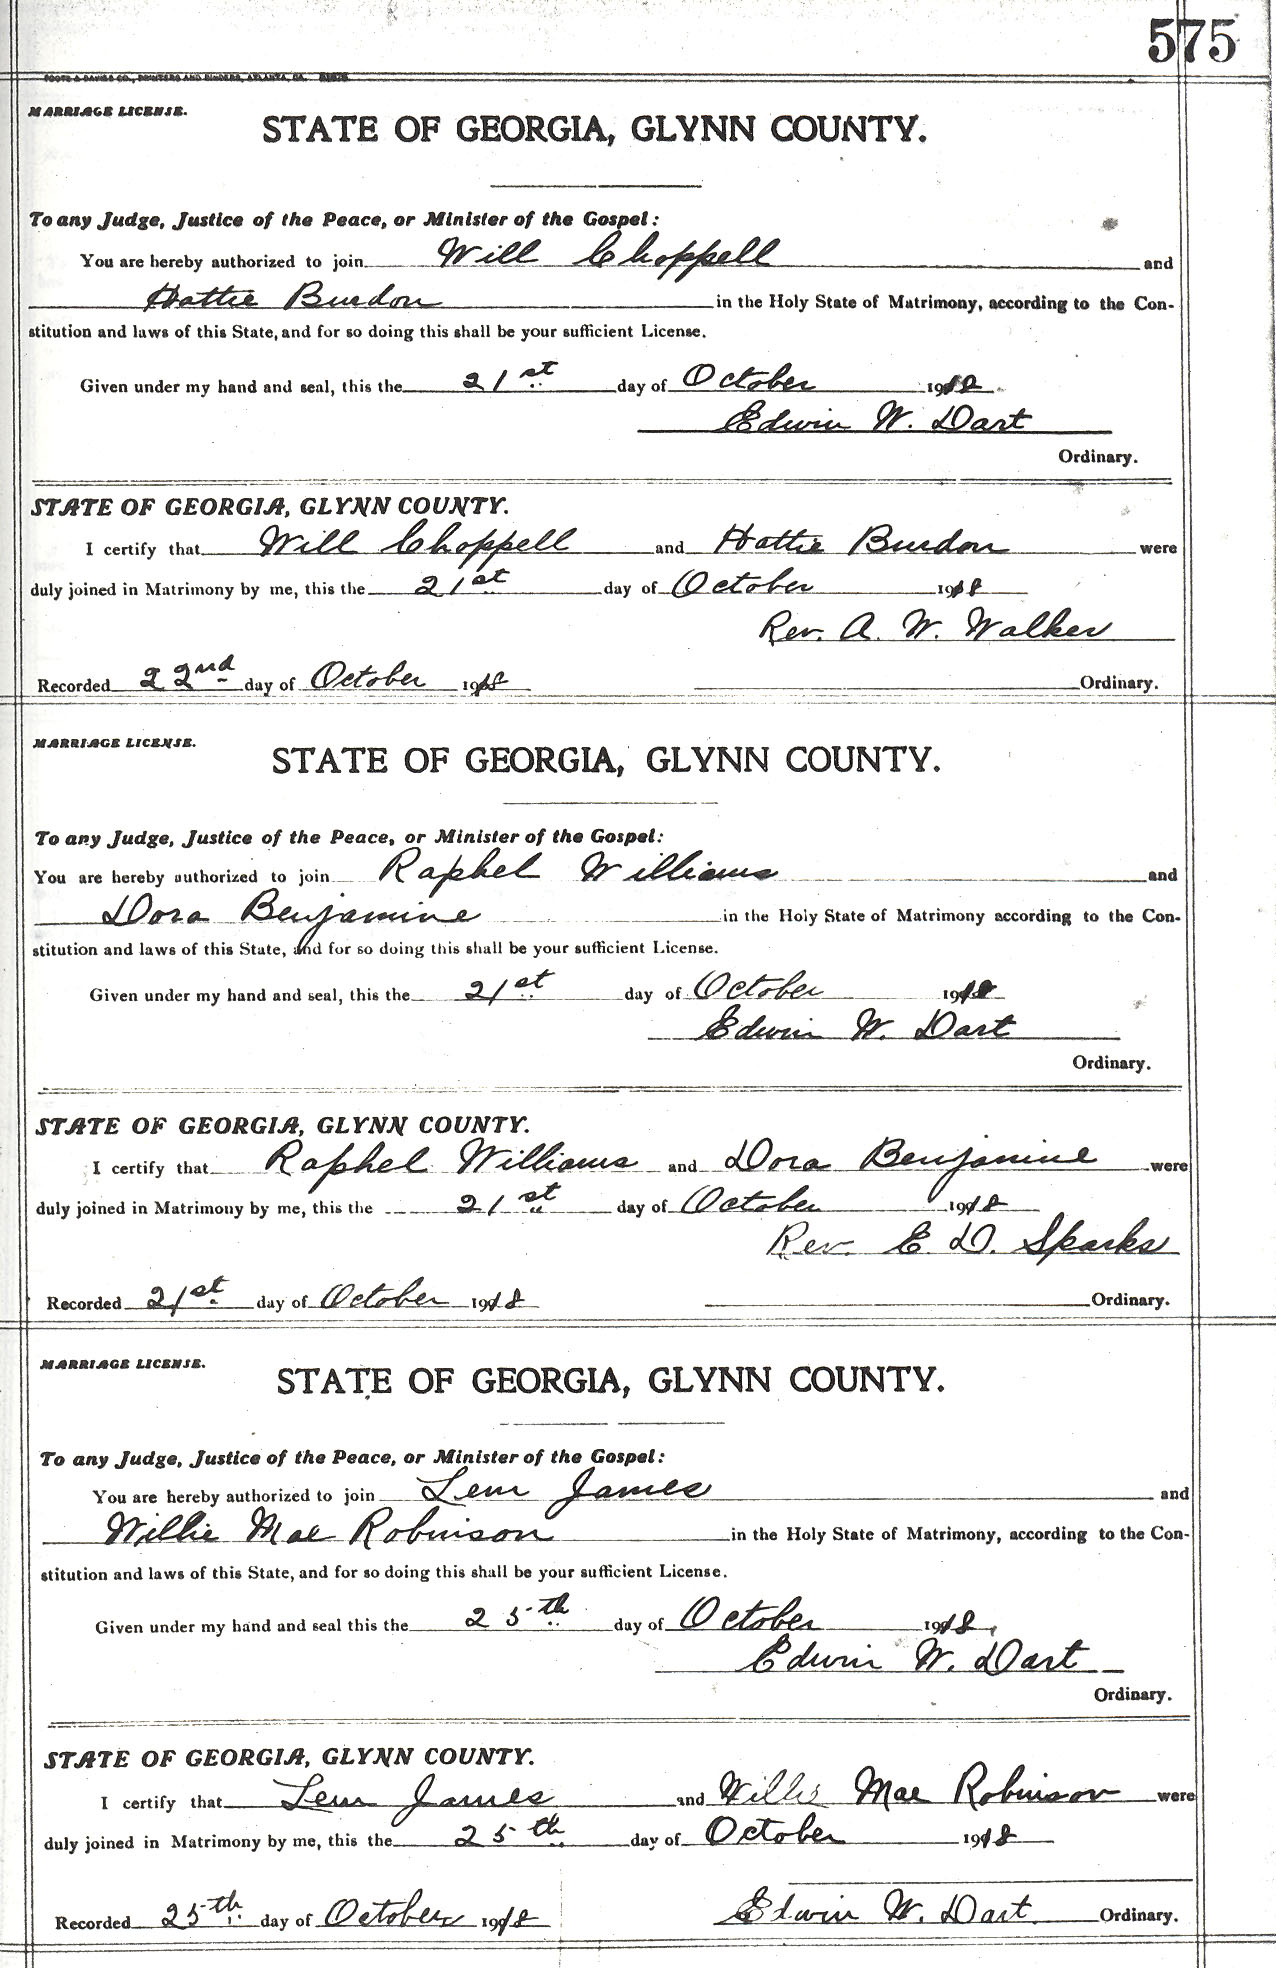 575
FOOTE & DAVIES CO., PRINTERS AND BINDERS, ATLANTA, GA.
MARRIAGE LICENSE.
STATE OF GEORGIA, GLYNN COUNTY.
To any Judge, Justice of the Peace, or Minister of the Gospel:
You are hereby authorized to join Will Choppell and
Hattie Burdon in the Holy State of Matrimony, according to the Con-
stitution and laws of this State, and for so doing this shall be your sufficient License.
Given under my hand and seal, this the 21st day of October 1918
Edwin W. Dart
Ordinary.
STATE OF GEORGIA, GLYNN COUNTY.
I certify that Will Choppell and Hattie Burdon were
duly joined in Matrimony by me, this the 21st day of October 1918
Rev. A. W. Walker
Recorded 22nd day of October 1918 Ordinary.
MARRIAGE LICENSE.
STATE OF GEORGIA, GLYNN COUNTY.
To any Judge, Justice of the Peace, or Minister of the Gospel:
You are hereby authorized to join Raphel Williams and
Dora Benjamine in the Holy State of Matrimony according to the Con-
stitution and laws of this State, and for so doing this shall be your sufficient License.
Given under my hand and seal, this the 21st day of October 1918
Edwin W. Dart
Ordinary.
STATE OF GEORGIA, GLYNN COUNTY.
I certify that Raphel Williams and Dora Benjamine were
duly joined in Matrimony by me, this the 21st day of October 1918
Rev. E. D. Sparks
Recorded 21st day of October 1918 Ordinary.
MARRIAGE LICENSE.
STATE OF GEORGIA, GLYNN COUNTY.
To any Judge, Justice of the Peace, or Minister of the Gospel:
You are hereby authorized to join Lem James and
Willie Mae Robinson in the Holy State of Matrimony, according to the Con-
stitution and laws of this State, and for so doing this shall be your sufficient License.
Given under my hand and seal this the 25th day of October 1918,
Edwin W. Dart
Ordinary.
STATE OF GEORGIA, GLYNN COUNTY.
I certify that Lem James and Willie Mae Robinson were
duly joined in Matrimony by me, this the 25th day of October 1918
Recorded 25th day of October 1918 Edwin W. Dart Ordinary.